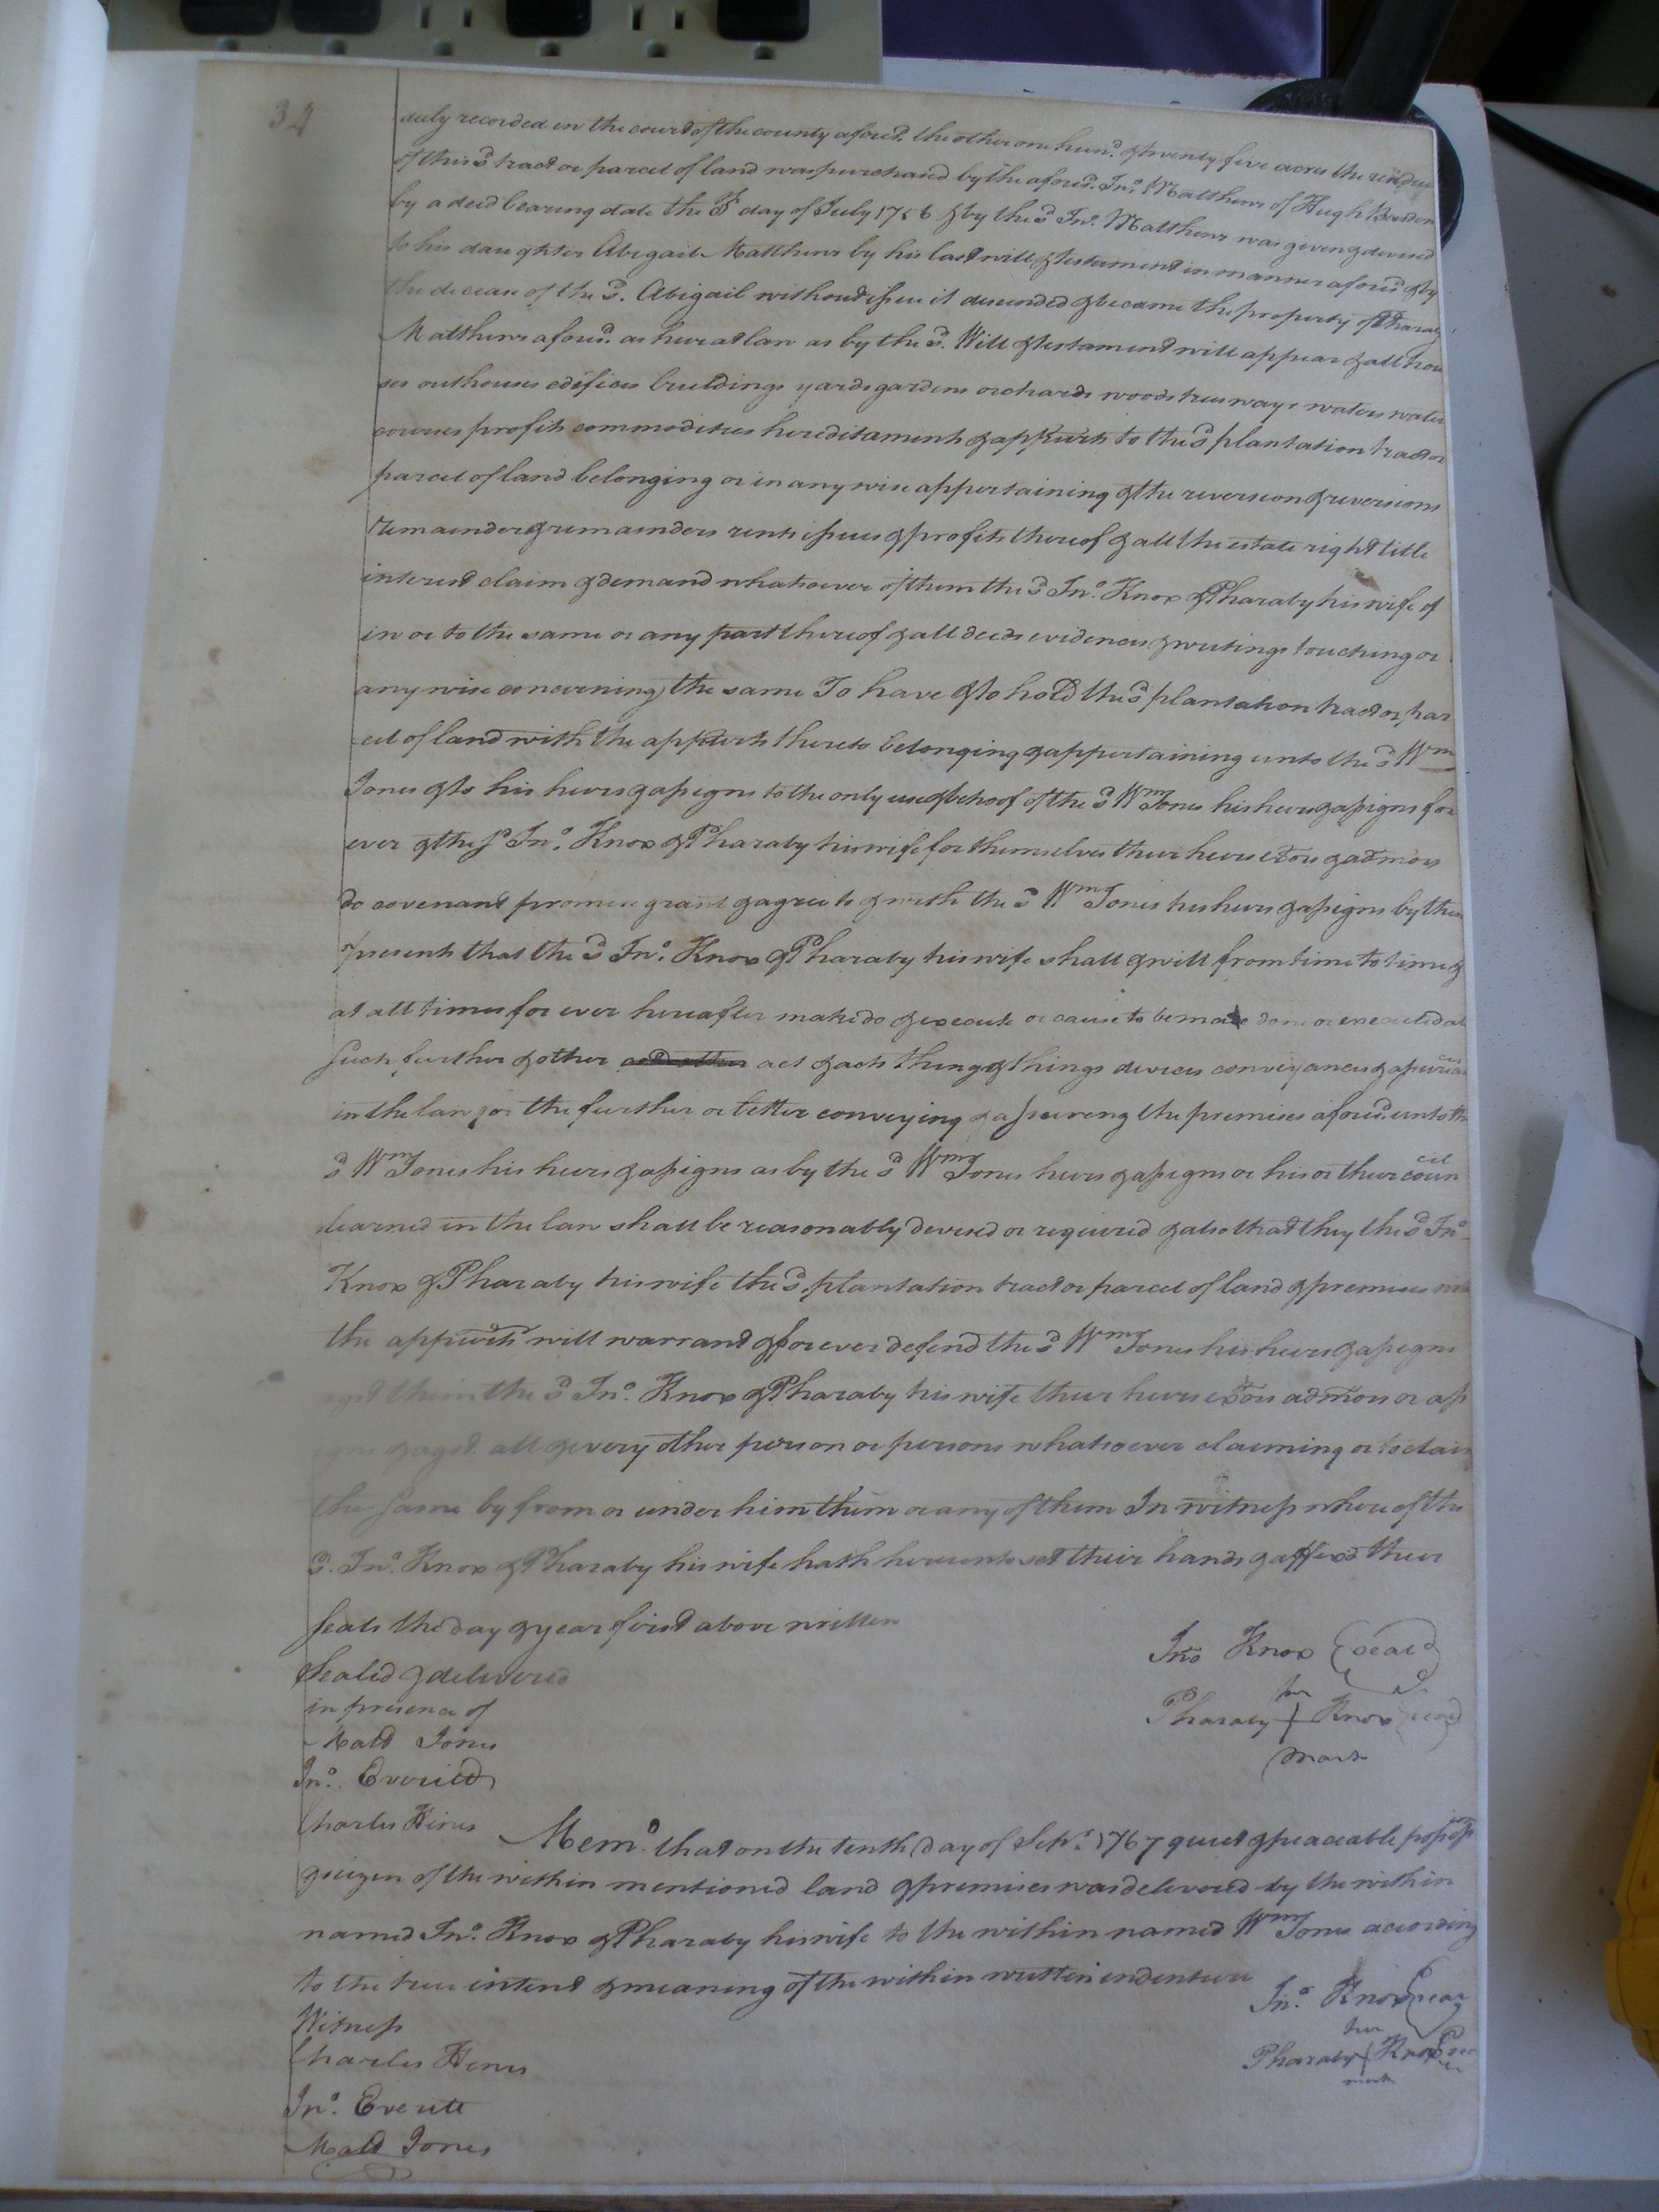 34
duly recorded in the court of the county afores.d the other one hun.d & twenty five acres the residue
of this s.d tract or parcel of land was purchased by the afores.d Jn.o Matthews of Hugh
by a deed bearing date the day of July 1756 & by the s.d Jn.o Matthews was given & devised
to his daughter Abigail Matthews by his last will & testament in manner afores.d & by
the decease of the s.d Abigail without issue it descended & became the property of Pharaby
Matthews afores.d as heir at law as by the s.d Will & testament will appear & all hou
ses outhouses edifices buildings yards gardens orchards woods trees ways waters water
courses profits commodities hereditaments & appurts to the s.d plantation tract or
parcel of land belonging or in any wise appertaining & the reversion & reversions
remainder & remainders rents issues & profits thereof & all the estate right title
interest claim & demand whatsoever of them the s.d Jn.o Knox & Pharaby his wife of
in or to the same or any part thereof & all deeds evidences & writings touching or
any wise concerning the same To have & to hold the s.d plantation tract or par
cel of land with the appurts thereto belonging & appertaining unto the s.d Wm
Jones & to his heirs & assigns to the only use & behoof of the s.d Wm Jones his heirs & assigns for
ever & the s.d Jn.o Knox & Pharaby his wife for themselves their heirs exors & admors
do covenant promise grant & agree to & with the s.d Wm Jones his heirs & assigns by these
presents that the s.d Jn.o Knox & Pharaby his wife shall & will from time to time &
at all times for ever hereafter make do & execute or cause to be made done or executed all
such further & other and other act & acts thing & things devices conveyances & assurances
in the law for the further or better conveying & assureing the premises afores.d unto the
s.d Wm Jones his heirs & assigns as by the s.d Wm Jones heirs & assigns or his or their council
learned in the law shall be reasonably devised or required & also that they the s.d Jno
Knox & Pharaby his wife the s.d plantation tract or parcel of land & premises with
the appurts will warrant & forever defend the s.d Wm Jones his heirs & assigns
agst them the s.d Jn.o Knox & Pharaby his wife their heirs exors admors or ass
igns & agst all & every other person or persons whatsoever claiming or to claim
the same by from or under him them or any of them In witness whereof the
s.d Jn.o Knox & Pharaby his wife hath hereunto set their hands & affixd their
seals the day & year first above written
Jno Knox (seal)
Sealed & delivered
her
in presence of
Pharaby Knox (seal)
Matt Jones
mark
Jn.o Everitt
Charles Hines
Mem.o that on the tenth day of Sep.r 1767 quiet & peaceable possession
& seizen of the within mentioned land & premises was delivered by the within
named Jn.o Knox & Pharaby his wife to the within named Wm Jones according
to the true intent & meaning of the within written indenture
Jn.o Knox (seal)
Witness
her
Charles Hines
Pharaby Knox (seal)
mark
Jn.o Everitt
Matt Jones